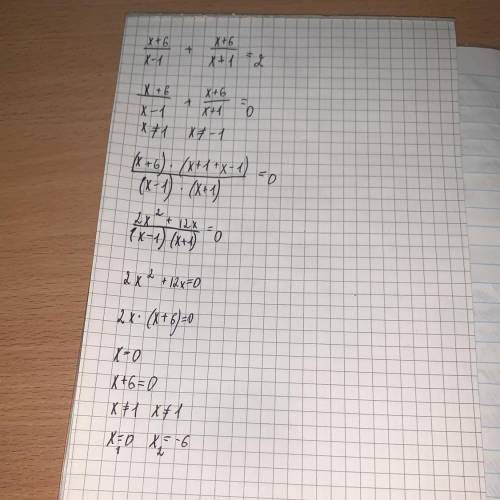 (x+6)/(x-1) + (x+6)/(x+1) = 2
(x+6)/(x-1) + (x+6)/(x+1) = 0
x≠1 x≠-1
((x+6)·(x+1+x-1))/((x-1)·(x+1)) = 0
(2x²+12x)/((x-1)(x+1)) = 0
2x²+12x=0
2x·(x+6)=0
x=0
x+6=0
x≠1 x≠1
x₁=0 x₂=-6